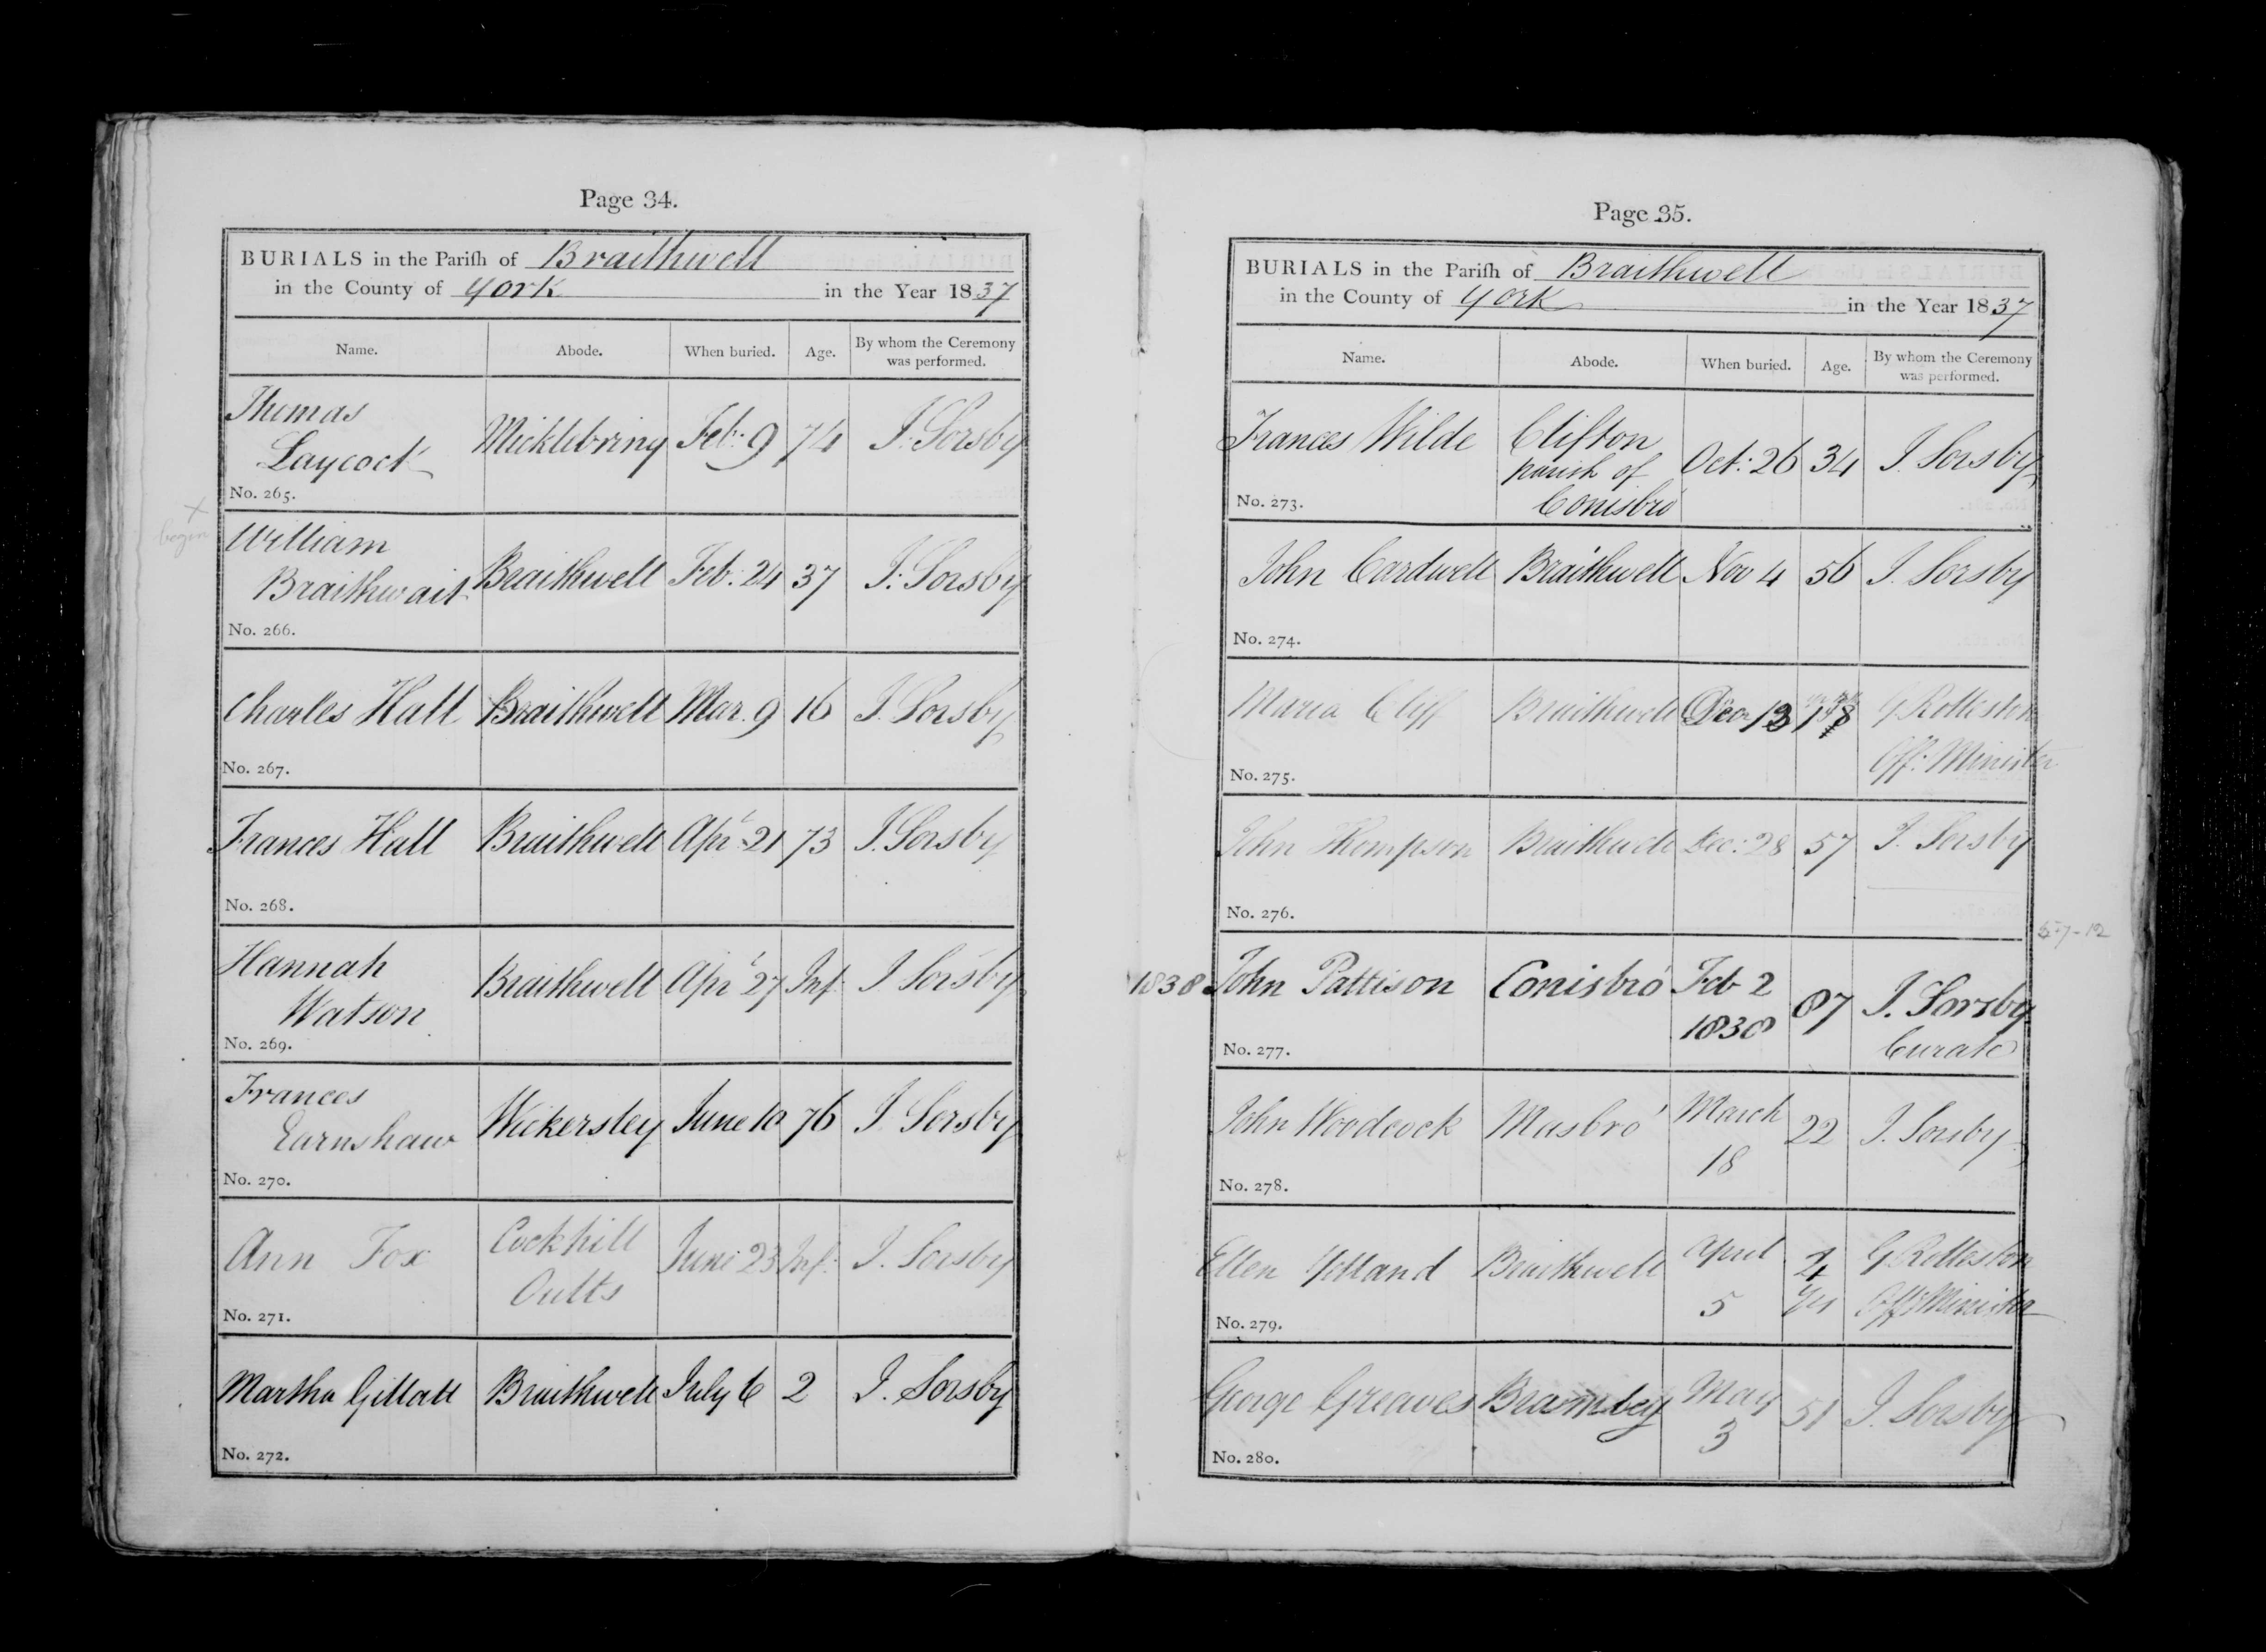 Page 34.
BURIALS in the Pariſh of Braithwell
in the County of York in the Year 1837
Name. Abode. When buried. Age. By whom the Ceremony was performed.
Thomas
Laycock Micklebring Feb: 9 74 J. Sorsby
No. 265.
begin
William
Braithwait Braithwell Feb: 24 37 J. Sorsby
No. 266.
Charles Hall Braithwell Mar. 9 16 J. Sorsby
No. 267.
Frances Hall Braithwell Apr 21 73 J. Sorsby
No. 268.
Hannah
Watson Braithwell Apr 27 Inf. J Sorsby
No. 269.
Frances
Earnshaw Wickersley June 10 76 J. Sorsby
No. 270.
Ann Fox Cockhill
Outts June 23 Inf: J. Sorsby
No. 271.
Martha Gillatt Braithwell July 6 2 J. Sorsby
No. 272.
Page 35.
BURIALS in the Pariſh of Braithwell
in the County of York in the Year 1837
Name. Abode. When buried. Age. By whom the Ceremony was performed.
Frances Wilde Clifton
parish of
Conisbro' Oct: 26 34 J. Sorsby
No. 273.
John Cardwell Braithwell Nov 4 56 J. Sorsby
No. 274.
Maria Cliff Braithwell Dec 13 G Rolleston
Off: Minister
No. 275.
John Thompson Braithwell Dec: 28 57 J. Sorsby
No. 276.
1838 John Pattison Conisbro' Feb 2
1838 87 J. Sorsby
Curate
No. 277.
John Woodcock Masbro' March
18 22 J. Sorsby
No. 278.
Ellen Yelland Braithwell April
5 yrs G Rolleston
Off: Minister
No. 279.
George Greaves Bramley May
3 51 J. Sorsby
No. 280.